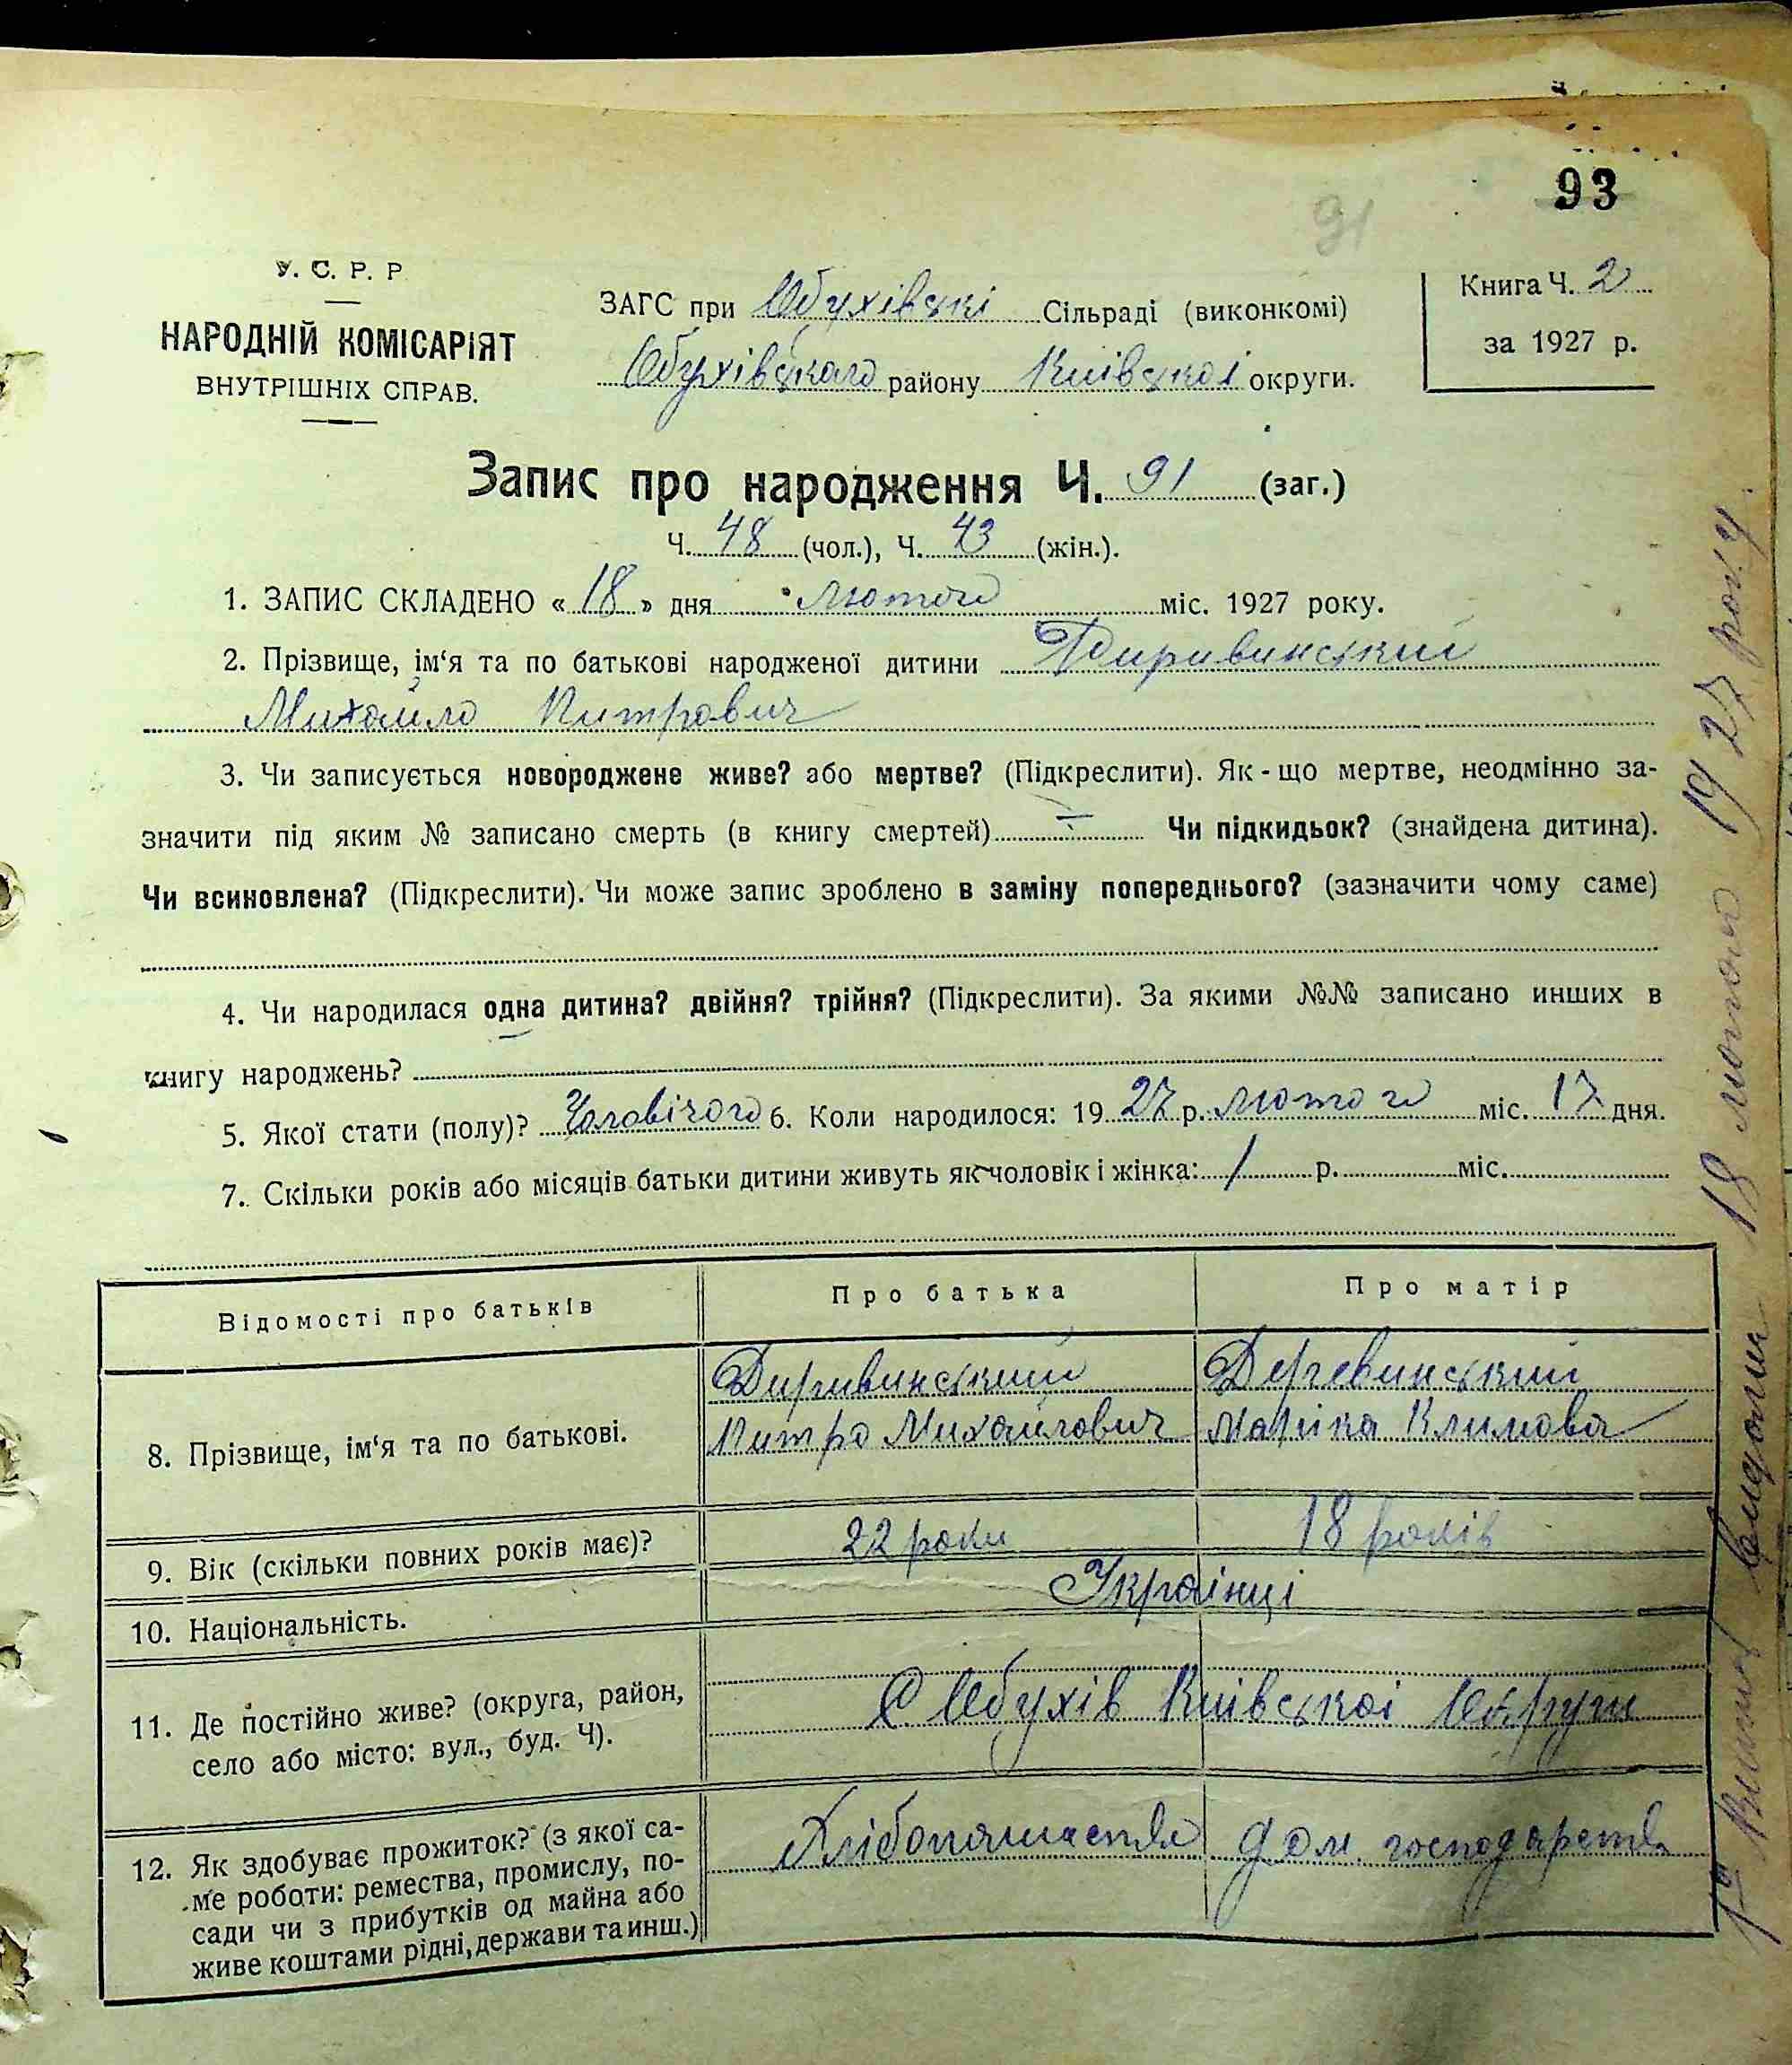 93
91
У. С. Р. Р
НАРОДНІЙ КОМІСАРІЯТ
ВНУТРІШНІХ СПРАВ.
ЗАГС при Обухівські Сільраді (виконкомі)
Обухівського району Київської округи.
Книга Ч. 2
за 1927 р.
Запис про народження Ч. 91 (заг.)
Ч. 48 (чол.), Ч. 43 (жін.).
1. ЗАПИС СКЛАДЕНО « 18 » дня лютого міс. 1927 року.
2. Прізвище, ім‘я та по батькові народженої дитини Диривинський
Михайло Питрович
3. Чи записується новороджене живе? або мертве? (Підкреслити). Як-що мертве, неодмінно за-
значити під яким № записано смерть (в книгу смертей) Чи підкидьок? (знайдена дитина).
Чи всиновлена? (Підкреслити). Чи може запис зроблено в заміну попереднього? (зазначити чому саме)
4. Чи народилася одна дитина? двійня? трійня? (Підкреслити). За якими №№ записано инших в
книгу народжень?
5. Якої стати (полу)? Чоловічого 6. Коли народилося: 19 27 р. лютого міс. 17 дня.
7. Скільки років або місяців батьки дитини живуть як чоловік і жінка: 1 р. міс.
Відомості про батьків
Про батька
Про матір
8. Прізвище, ім‘я та по батькові.
Диривинський
Питро Михайлович
Деревинський
Маріка Климова
9. Вік (скільки повних років має)?
22 роки
18 років
10. Національність.
Українці
11. Де постійно живе? (округа, район,
село або місто: вул., буд. Ч).
С Обухів Київскоі Округи
12. Як здобуває прожиток? (з якої са-
ме роботи: ремества, промислу, по-
сади чи з прибутків од майна або
живе коштами рідні, держави та инш.)
Хлібопашество
дом. господарство
18 лютого 1927 року